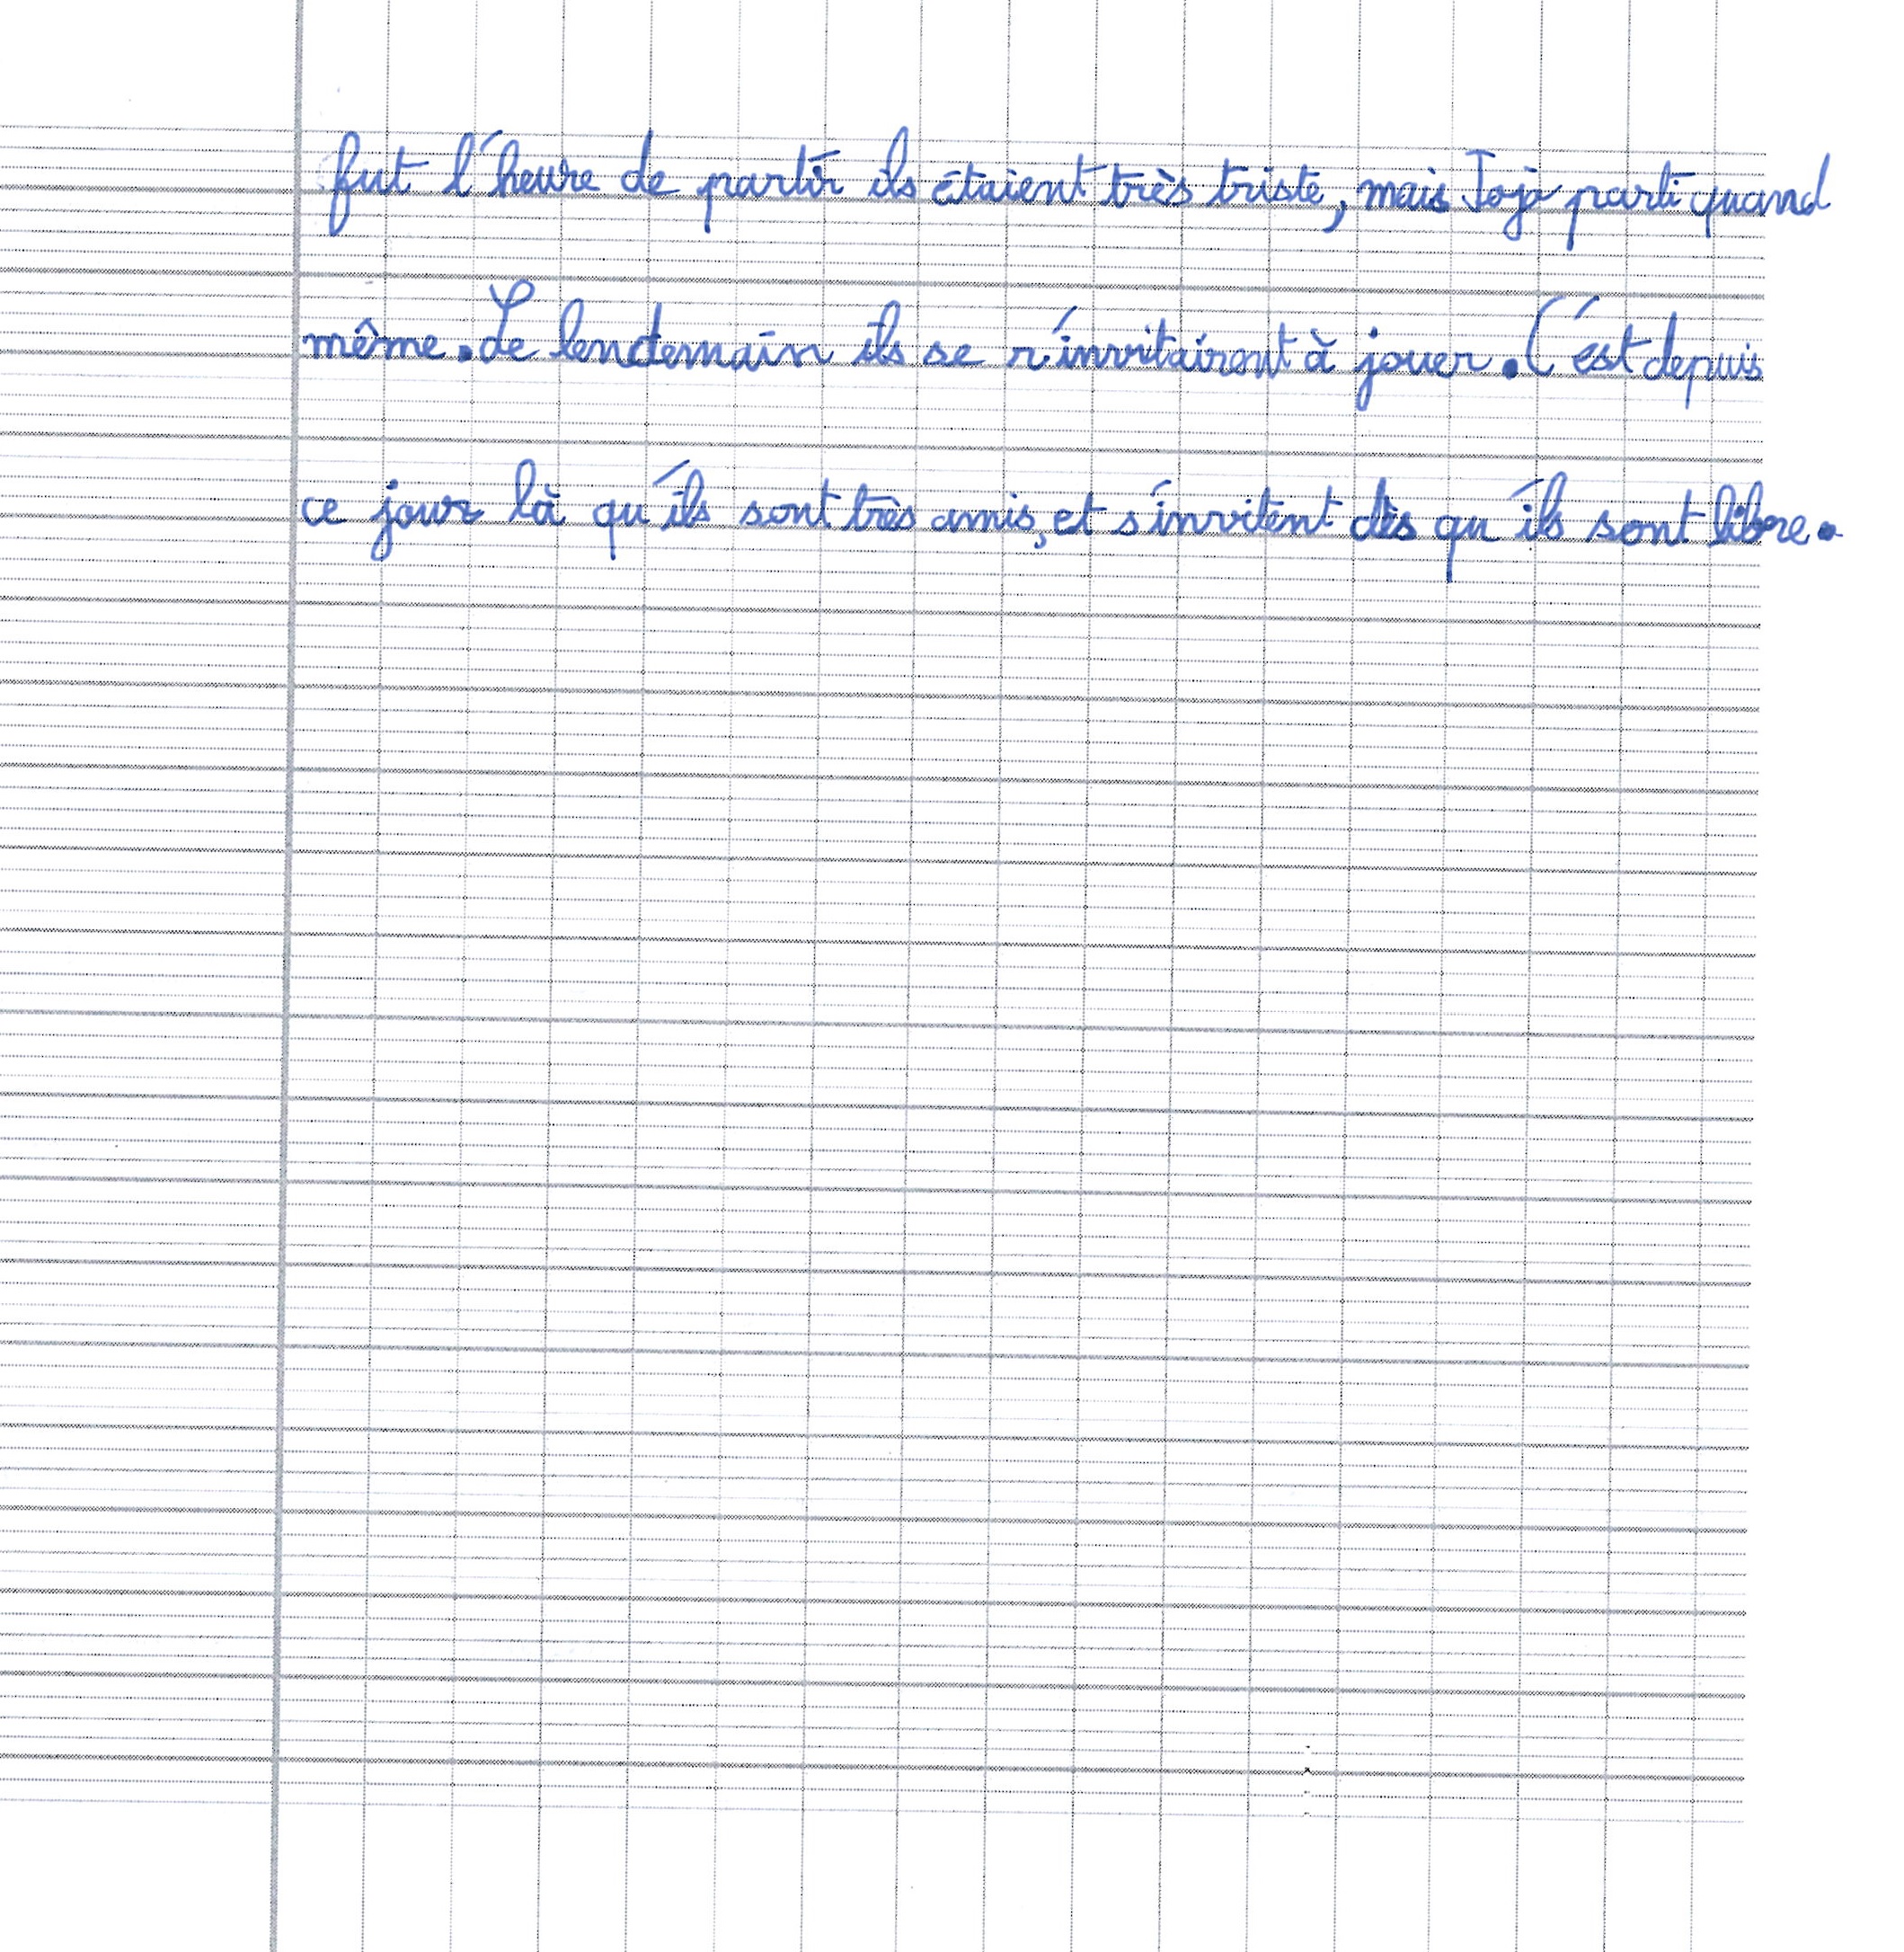 fut l'heure de partir ils étaient très triste, mais Jojo parti quand
même. Le lendemain ils se r'invitairent à jouer. C'est depuis
ce jour là qu'ils sont très amis, et s'invitent dès qu'ils sont libre.